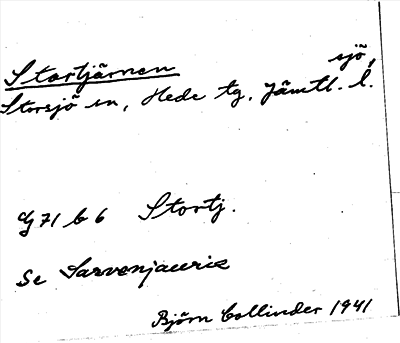 Stortjärnen sjö,
Storsjö sn, Hede tg. Jämtl. l.
G 71 b 6 Stortj.
Se Sarvenjaurie
Björn Collinder 1941